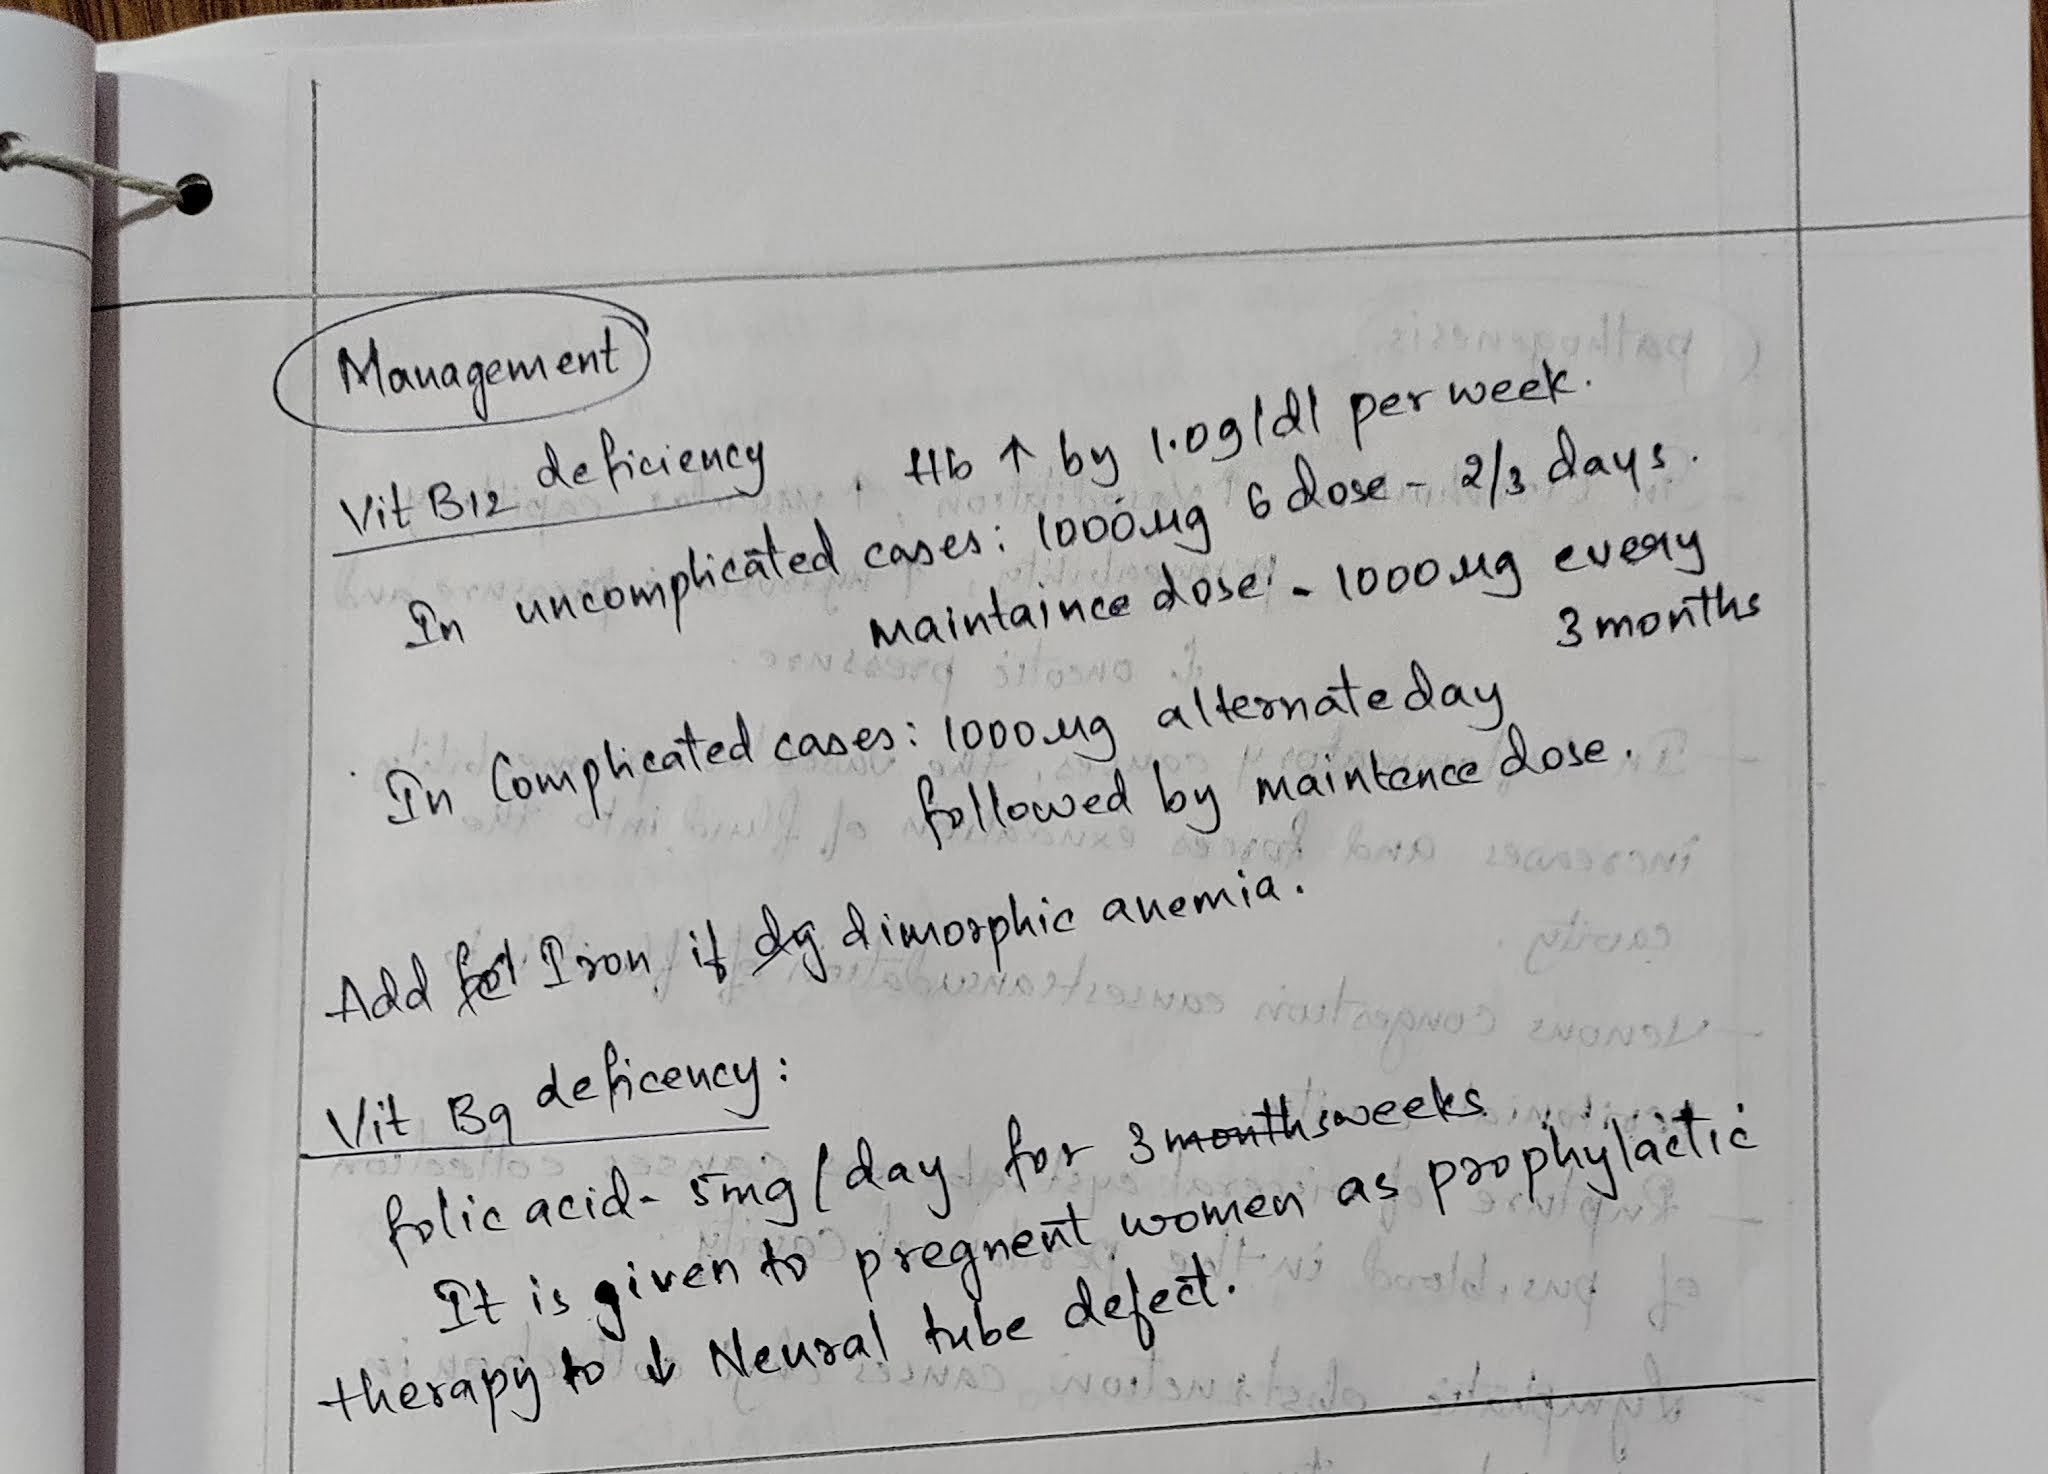 Management
Vit B12 deficiency . Hb ↑ by 1.0g/dl per week.
In uncomplicated cases: 1000µg 6 dose - 2/3 days.
Maintaince dose - 1000µg every
3 months
In Complicated cases: 1000µg alternate day
followed by maintence dose.
Add Iron if dimorphic anemia.
Vit B9 deficency:
folic acid - 5mg/day for 3 months weeks
It is given to pregnent women as prophylactic
therapy to ↓ Neural tube defect.